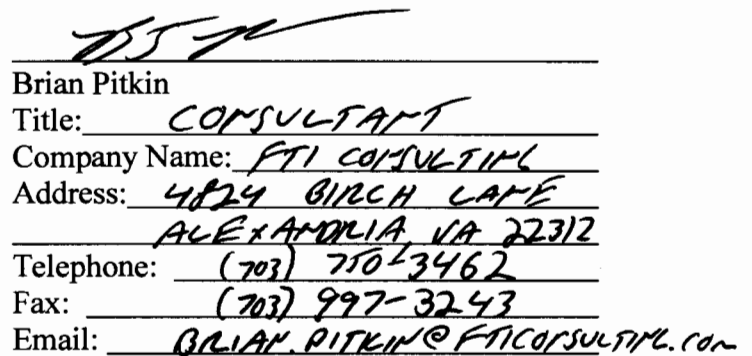 Brian Pitkin
Title: CONSULTANT
Company Name: FTI CONSULTING
Address: 4824 BIRCH LANE
ALEXANDRIA, VA 22312
Telephone: (703) 750-3462
Fax: (703) 997-3243
Email: BRIAN.PITKIN@FTICONSULTING.COM